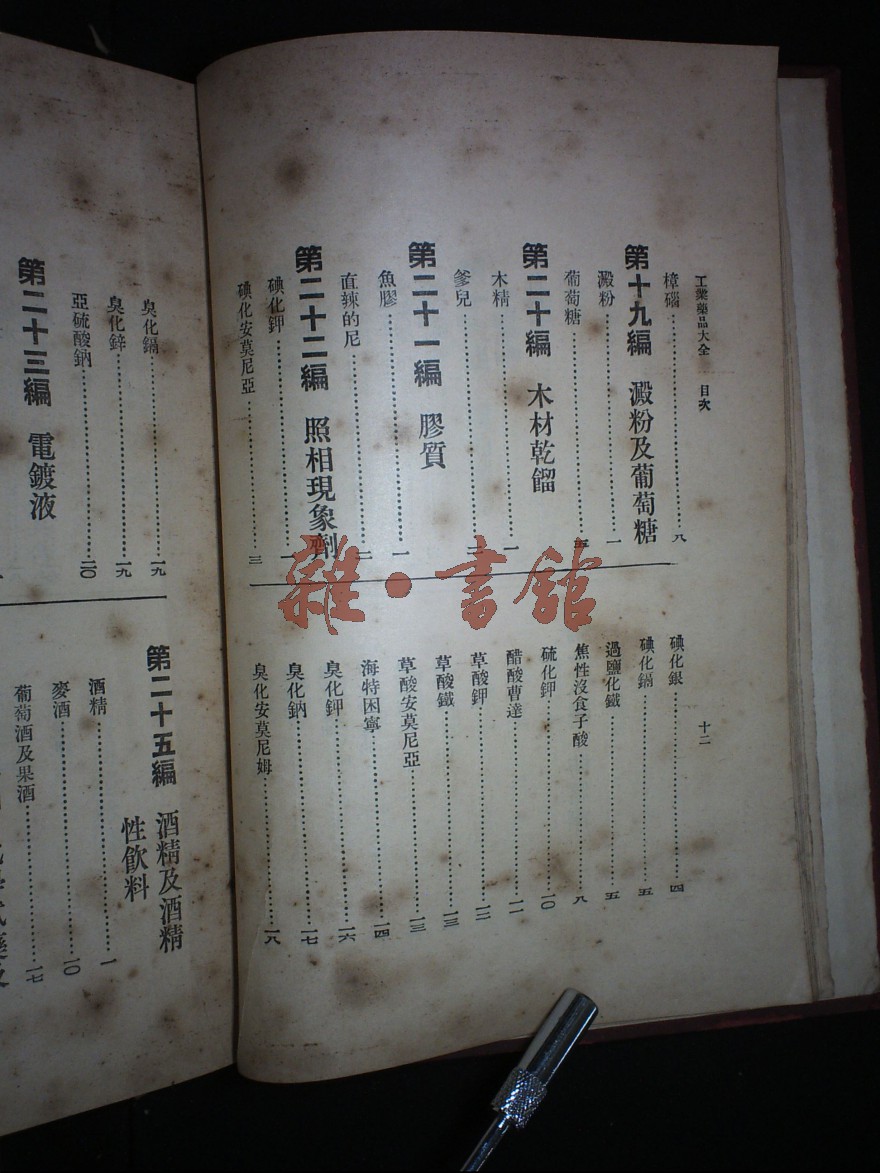 工業藥品大全 目次
十二
樟腦 八
第十九編 澱粉及葡萄糖
澱粉 一
葡萄糖
第二十編 木材乾餾
木精 一
爹兒 二
第二十一編 膠質
魚膠 一
直辣的尼 二
第二十二編 照相現象劑
碘化鉀 一
碘化安莫尼亞 三
碘化銀 四
碘化鎘 五
過鹽化鐵 五
焦性沒食子酸 八
硫化鉀 一〇
醋酸曹達 一一
草酸鉀 一二
草酸鐵 一三
草酸安莫尼亞 一三
海特困寧 一四
臭化鉀 一六
臭化鈉 一七
臭化安莫尼姆 一八
臭化鎘 一九
臭化鋅 一九
亞硫酸鈉 二〇
第二十三編 電鍍液
第二十五編 酒精及酒精性飲料
酒精 一
麥酒 一〇
葡萄酒及果酒 一七
雜·書館